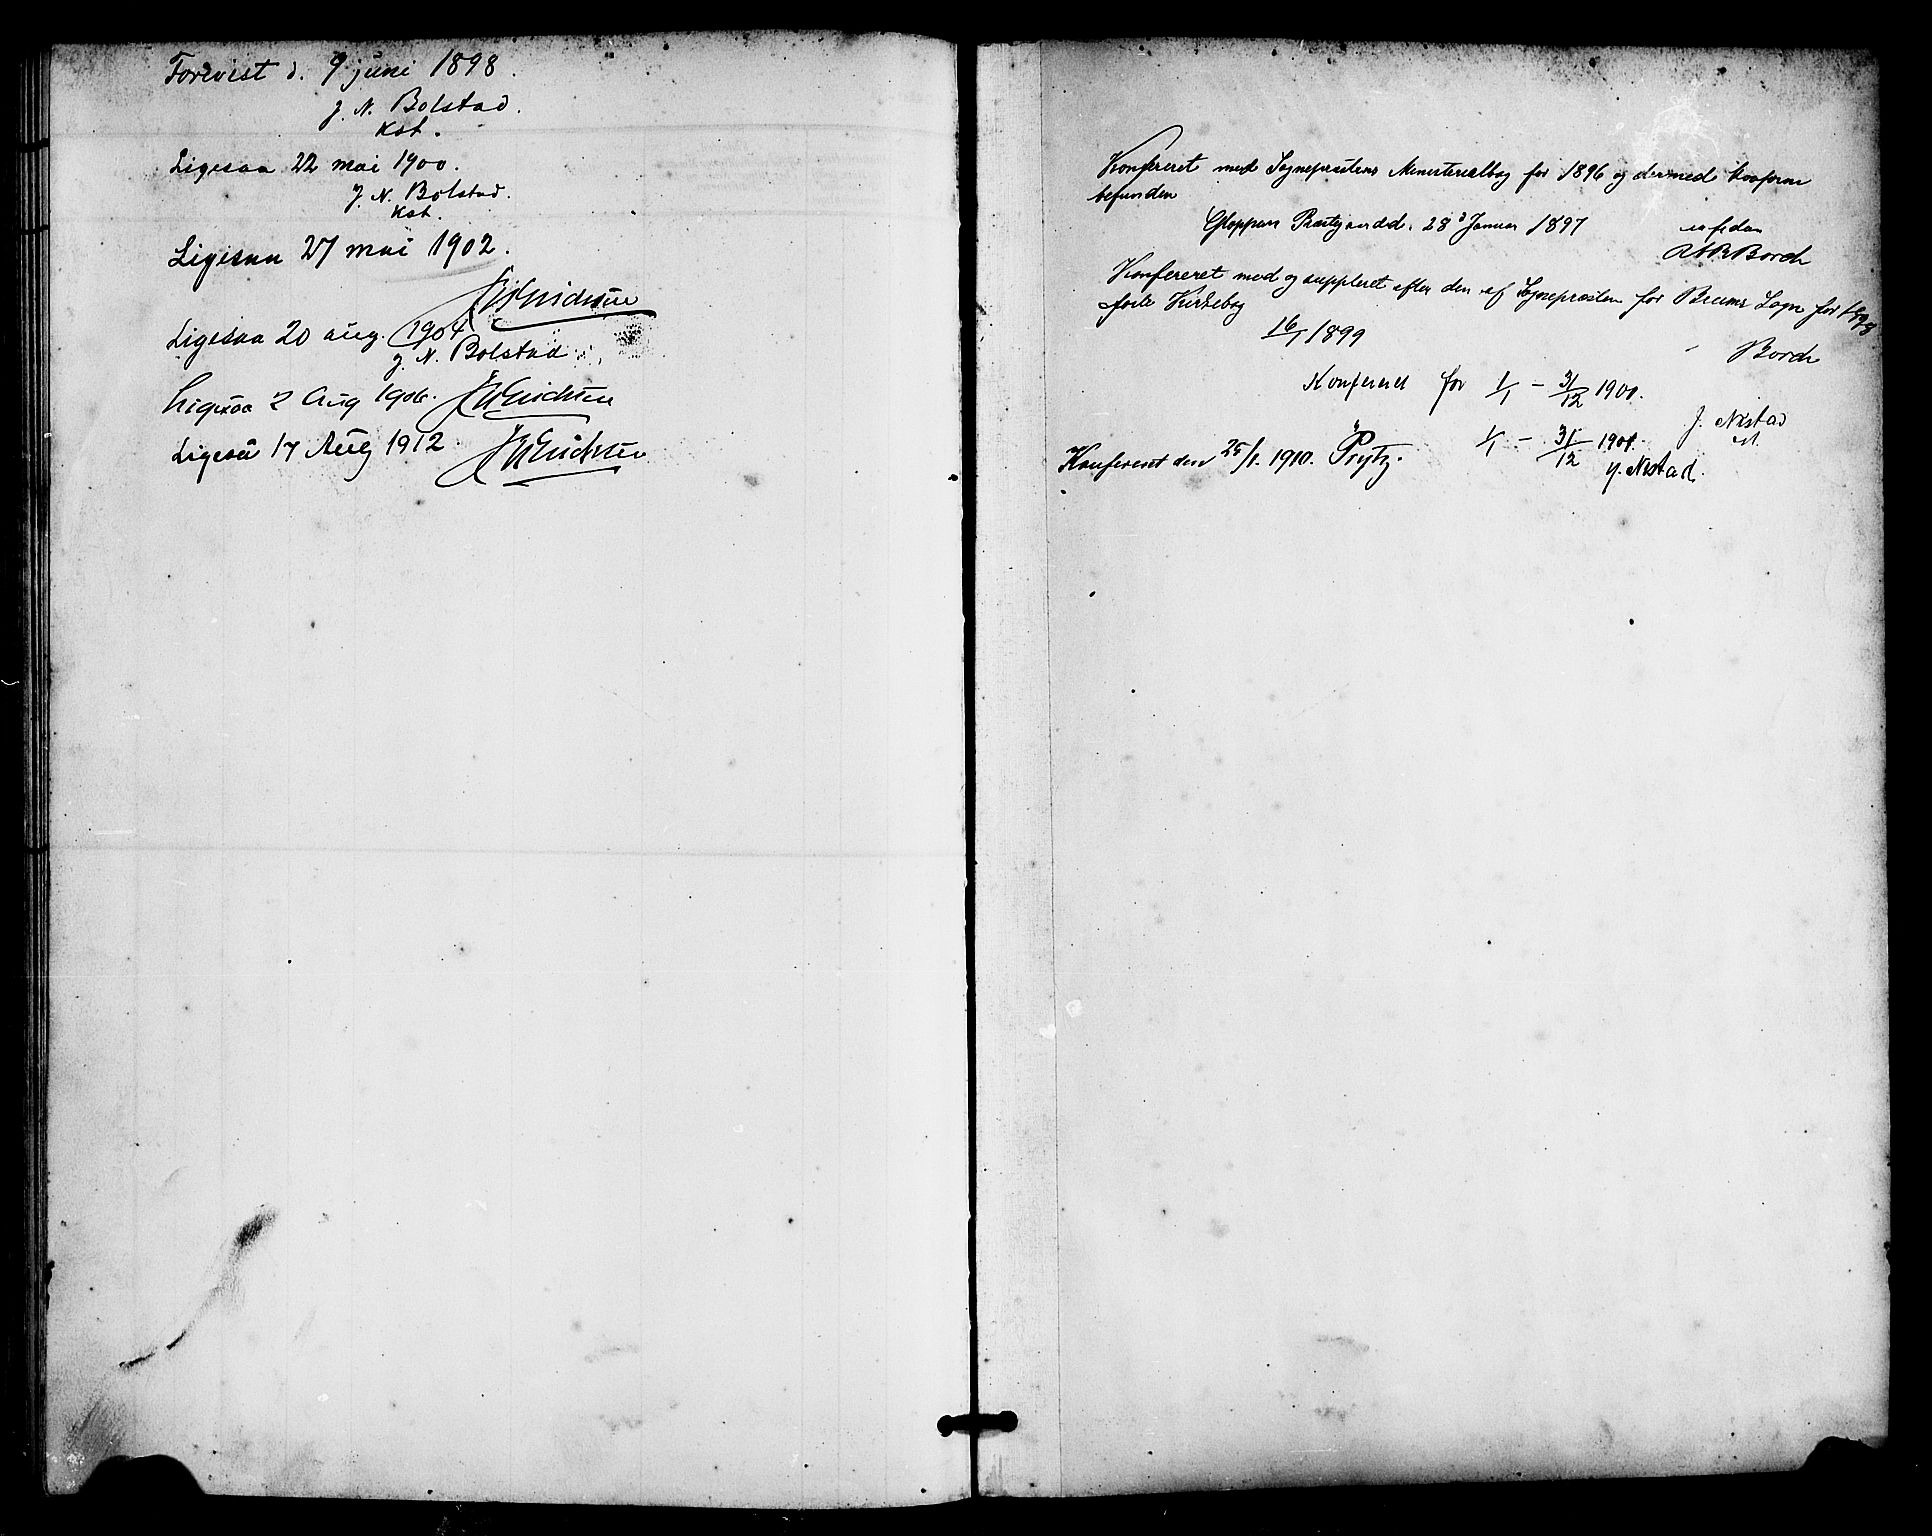 Forevist d. 9 juni 1898.
J. N. Bolstad.
Kst.
Ligesaa 22 mai 1900.
J. N. Bolstad.
Kst.
Ligesaa 27 mai 1902.
Ligesaa 20 aug. 1904
J. N. Bolstad
Ligesaa 2 Aug 1906.
Ligesaa 17 Aug 1912.
Konfereret med Sognepræstens Ministerialbog for 1896 og dermed konform
befunden
Gloppen Præstegaard d. 28 Januar 1897
Borch
Konfereret med og suppleret efter den af Sognepræsten for Breims Sogn for 1898
førte Kirkebog
16/1 1899
Borch
Konfereret for 1/1 - 31/12 1900.
J. Nestad
1/1 - 31/12 1901.
J. Nestad.
Konfereret den 25/1. 1910. Prytz.